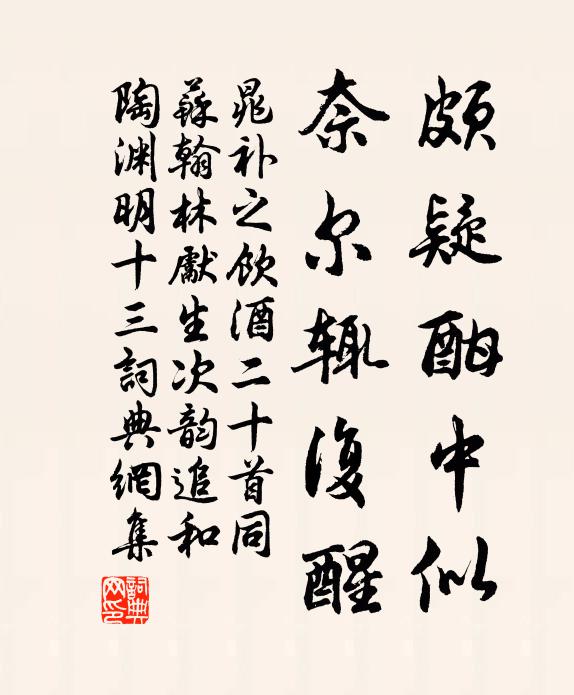 颇疑酣中似
奈尔辄復醒
晁补之飲酒二十首同
蘇翰林獻生次韵追和
陶渊明十三詞典網集
詞典
网印